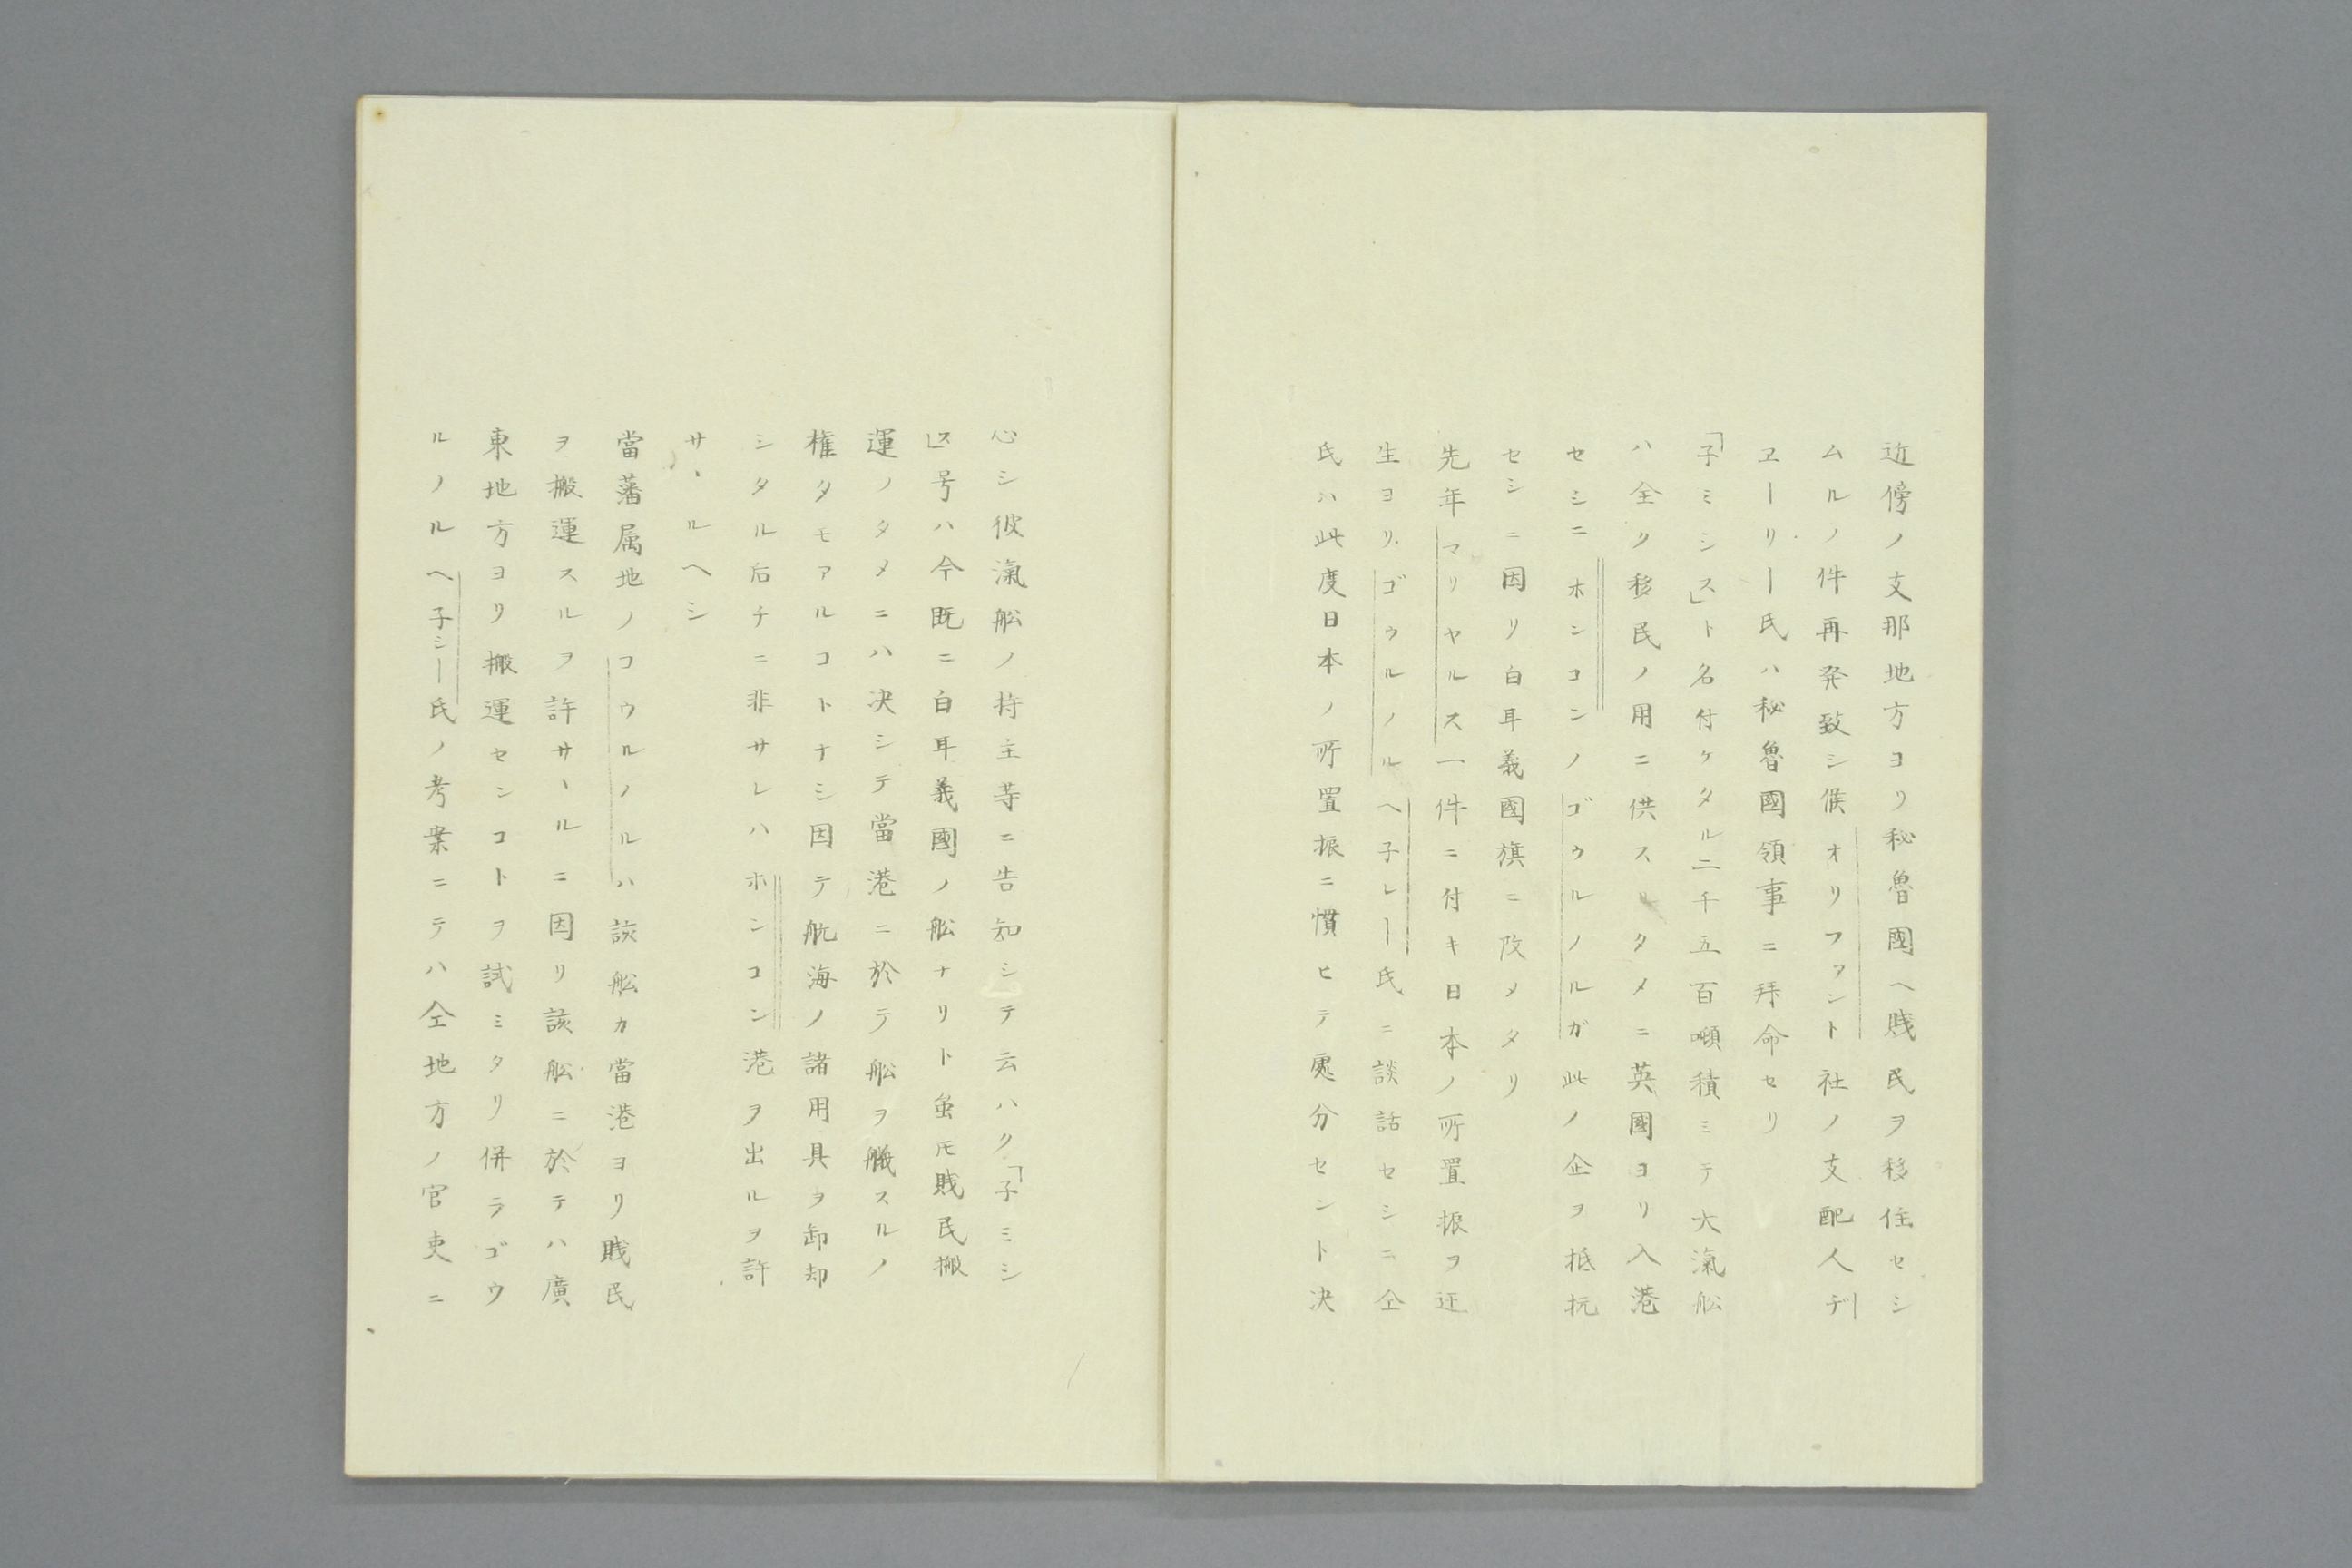 近傍ノ支那地方ヨリ秘魯國ヘ賎民ヲ移住セシ
ムルノ件再発致シ候オリファント社ノ支配人デ
ヱーリー氏ハ秘魯國領事ニ拜命セリ
「子ミシス」ト名付ケタル二千五百噸積ミテ大滊舩
ハ全ク移民ノ用ニ供スルタメニ英國ヨリ入港
セシニホンコンノゴウルノルガ此ノ企ヲ抵抗
セシニ因リ白耳義國旗ニ改メタリ
先年マリヤルス一件ニ付キ日本ノ所置振ヲ
生ヨリゴウルノルヘ子レー氏ニ談話セシニ仝
氏ハ此度日本ノ所置振ニ慣ヒテ處分セント决
心シ彼滊舩ノ持主等ニ告知シテ云ハク「子ミシ
ス」号ハ今既ニ白耳義國ノ舩ナリト虽𪜈賎民搬
運ノタメニハ决シテ當港ニ於テ舩ヲ艤スルノ
権タモアルコトナシ因テ航海ノ諸用具ヲ卸却
シタル后チニ非サレハホンコン港ヲ出ルヲ許
サヽルヘシ
當藩属地ノコウルノルハ該舩カ當港ヨリ賎民
ヲ搬運スルヲ許サヽルニ因リ該舩ニ於テハ廣
東地方ヨリ搬運センコトヲ試ミタリ併ラゴウ
ルノルヘ子シー氏ノ考案ニテハ仝地方ノ官吏ニ